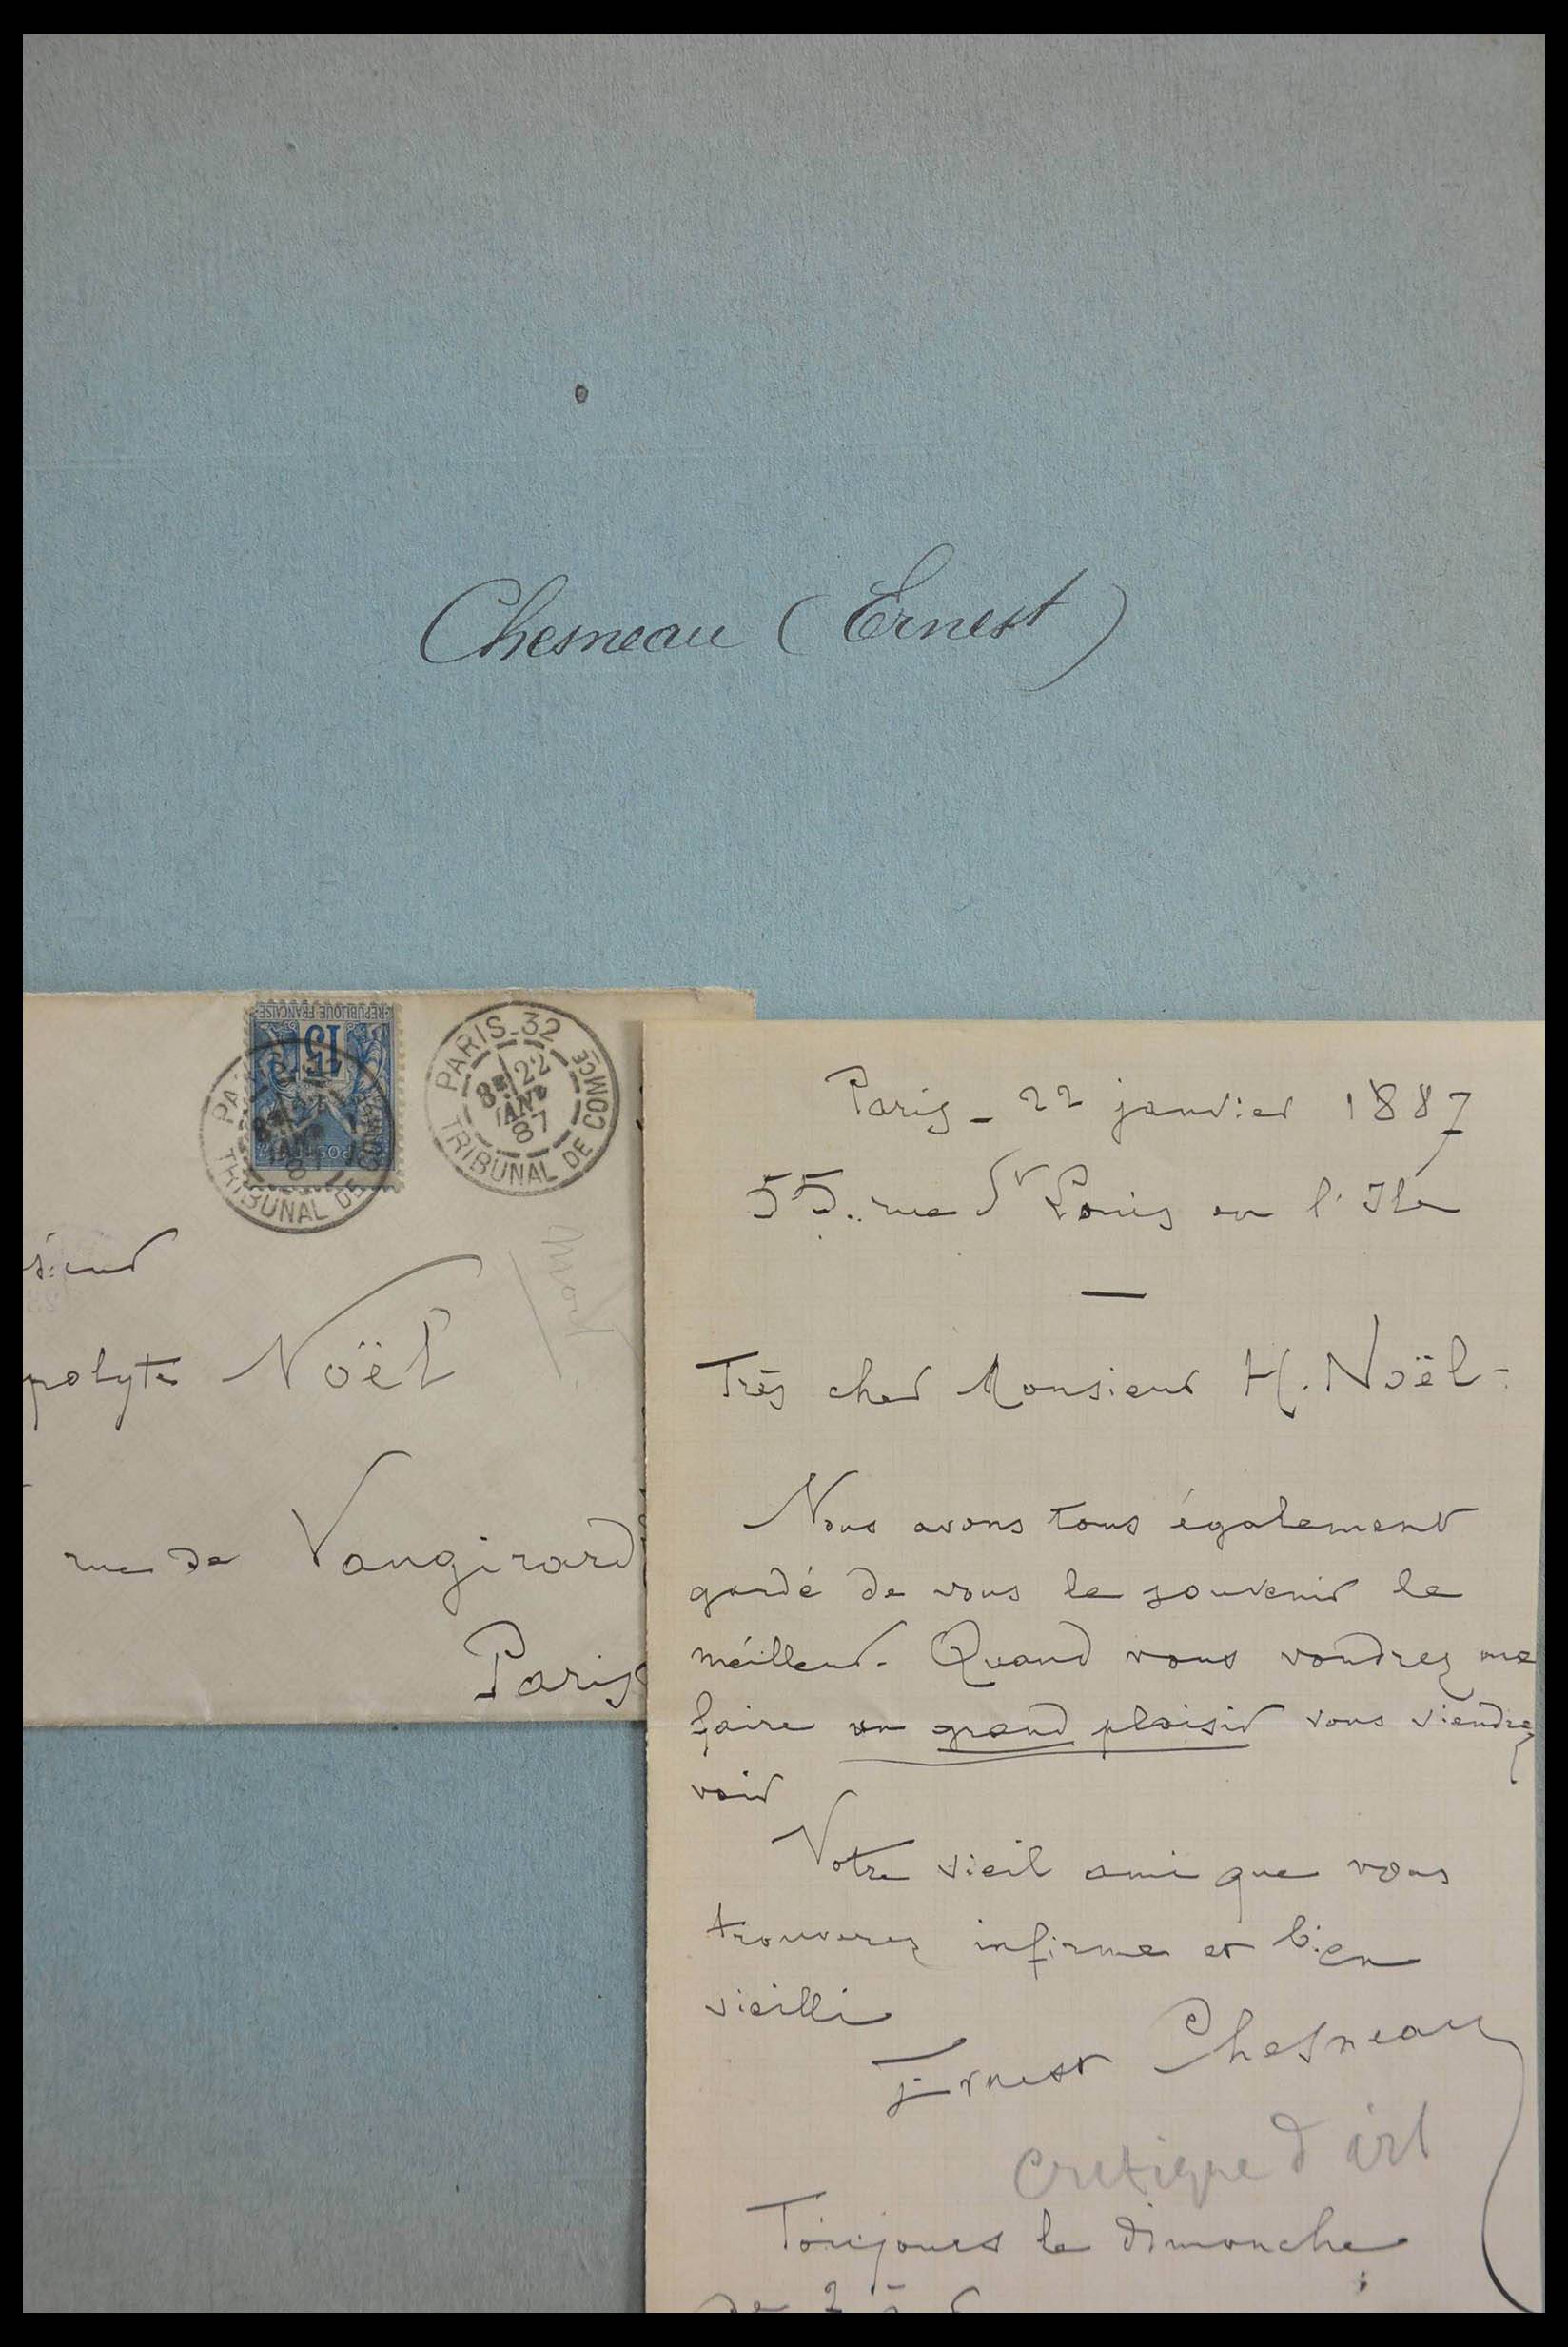 Chesneau (Ernest)
RÉPUBLIQUE FRANÇAISE
15
PARIS_32
8E 22
JANV
87
TRIBUNAL DE COMCE
TRIBUNAL DE
sieur
polyte Noël
rue de Vaugirard
Paris
Paris - 22 janvier 1887
55. rue St Louis en l'Ile
—
Très cher Monsieur H. Noël -
Nous avons tous également
gardé de vous le souvenir le
meilleur - Quand vous voudrez me
faire un grand plaisir vous viendrez
voir
Votre vieil ami que vous
trouverez infirme et bien
vieilli
Ernest Chesneau
critique d'art
Toujours le dimanche
de 2 à